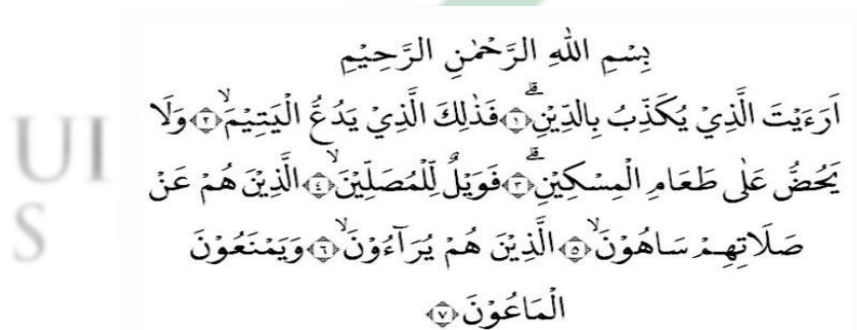 بِسْمِ اللهِ الرَّحْمٰنِ الرَّحِيْمِ
اَرَءَيْتَ الَّذِيْ يُكَذِّبُ بِالدِّيْنِۗ ۝١ فَذٰلِكَ الَّذِيْ يَدُعُّ الْيَتِيْمَۙ ۝٢ وَلَا
UI يَحُضُّ عَلٰى طَعَامِ الْمِسْكِيْنِۗ ۝٣ فَوَيْلٌ لِّلْمُصَلِّيْنَۙ ۝٤ الَّذِيْنَ هُمْ عَنْ
S صَلَاتِهِمْ سَاهُوْنَۙ ۝٥ الَّذِيْنَ هُمْ يُرَآءُوْنَۙ ۝٦ وَيَمْنَعُوْنَ
الْمَاعُوْنَ ۝٧